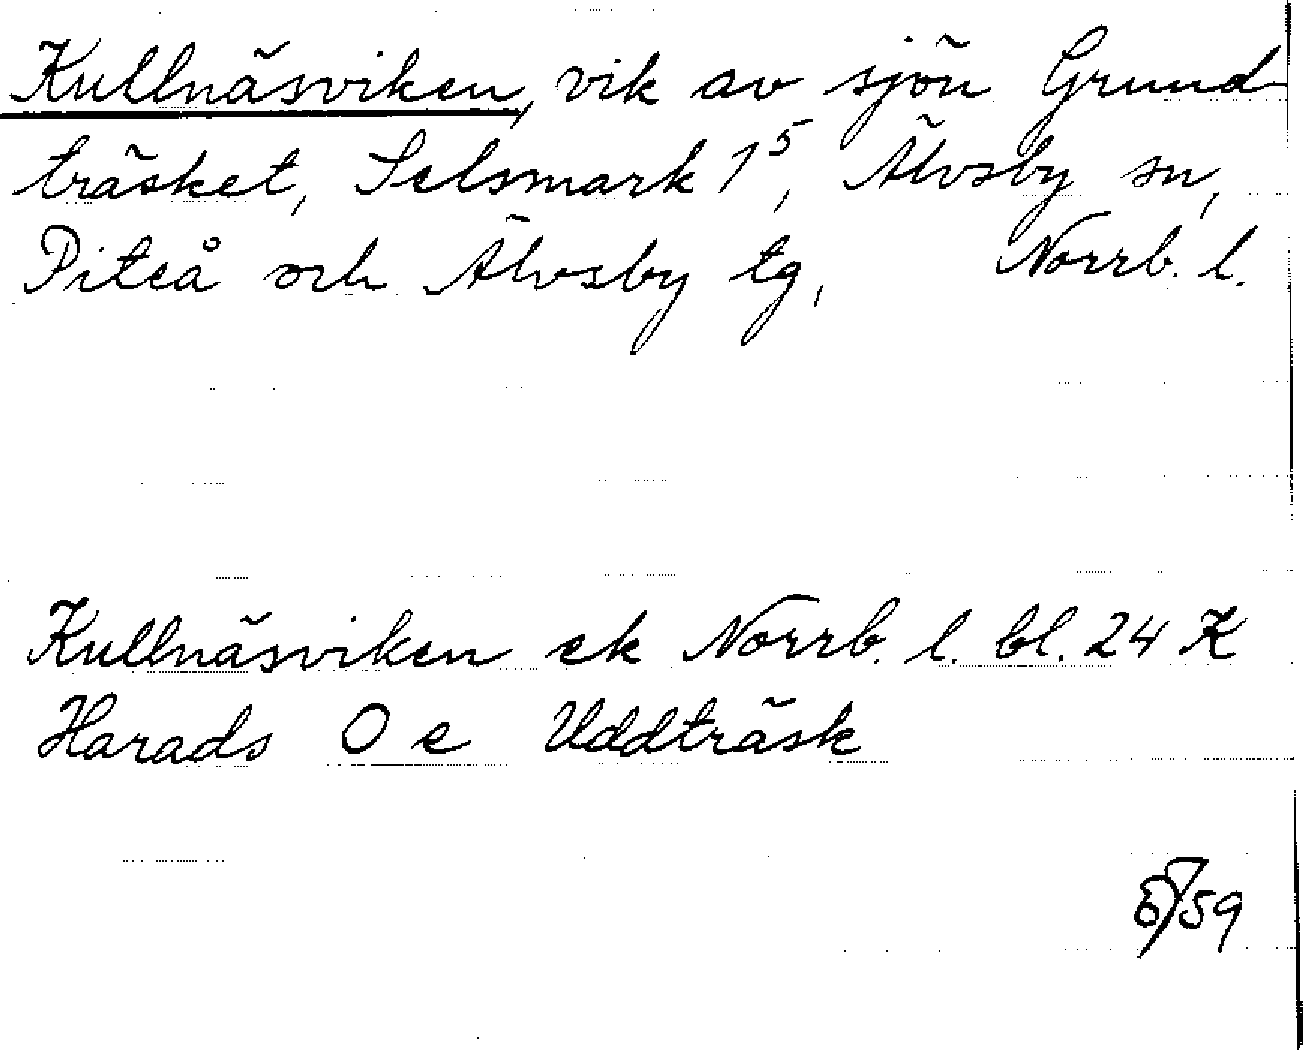 Kullnäsviken, vik av sjön Grund
träsket, Selsmark 1⁵, Älvsby sn,
Piteå och Älvsby tg, Norrb. l.
Kullnäsviken ek Norrb. l. bl. 24 K
Harads O e Uddträsk
/59